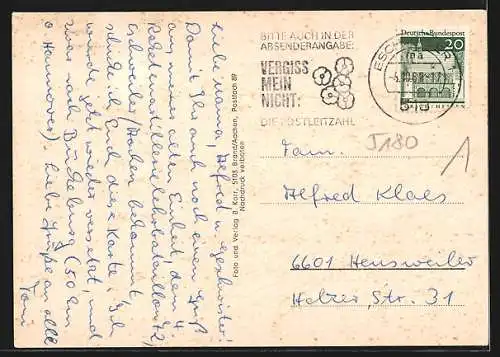 Liebe Mama, Alfred u. Geschwister!
Damit Ihr auch noch einen Gruß
aus meiner alten Einheit, dem 4.
Raketenartillerielehrbataillon 42,
Eschweiler/Aachen bekommt,
schicke ich Euch diese Karte. Ich
wurde jetzt wieder versetzt, und
zwar nach Bückeburg (50 km
v. Hannover). Liebe Grüße an alle
Toni
Foto und Verlag B. Korr, 5103 Brand/Aachen, Postfach 89
Nachdruck verboten
BITTE AUCH IN DER
ABSENDERANGABE:
VERGISS
MEIN
NICHT:
DIE POSTLEITZAHL
Deutsche Bundespost
20
J180
Fam.
Alfred Klaes
6601 Heusweiler
Holzer Str. 31